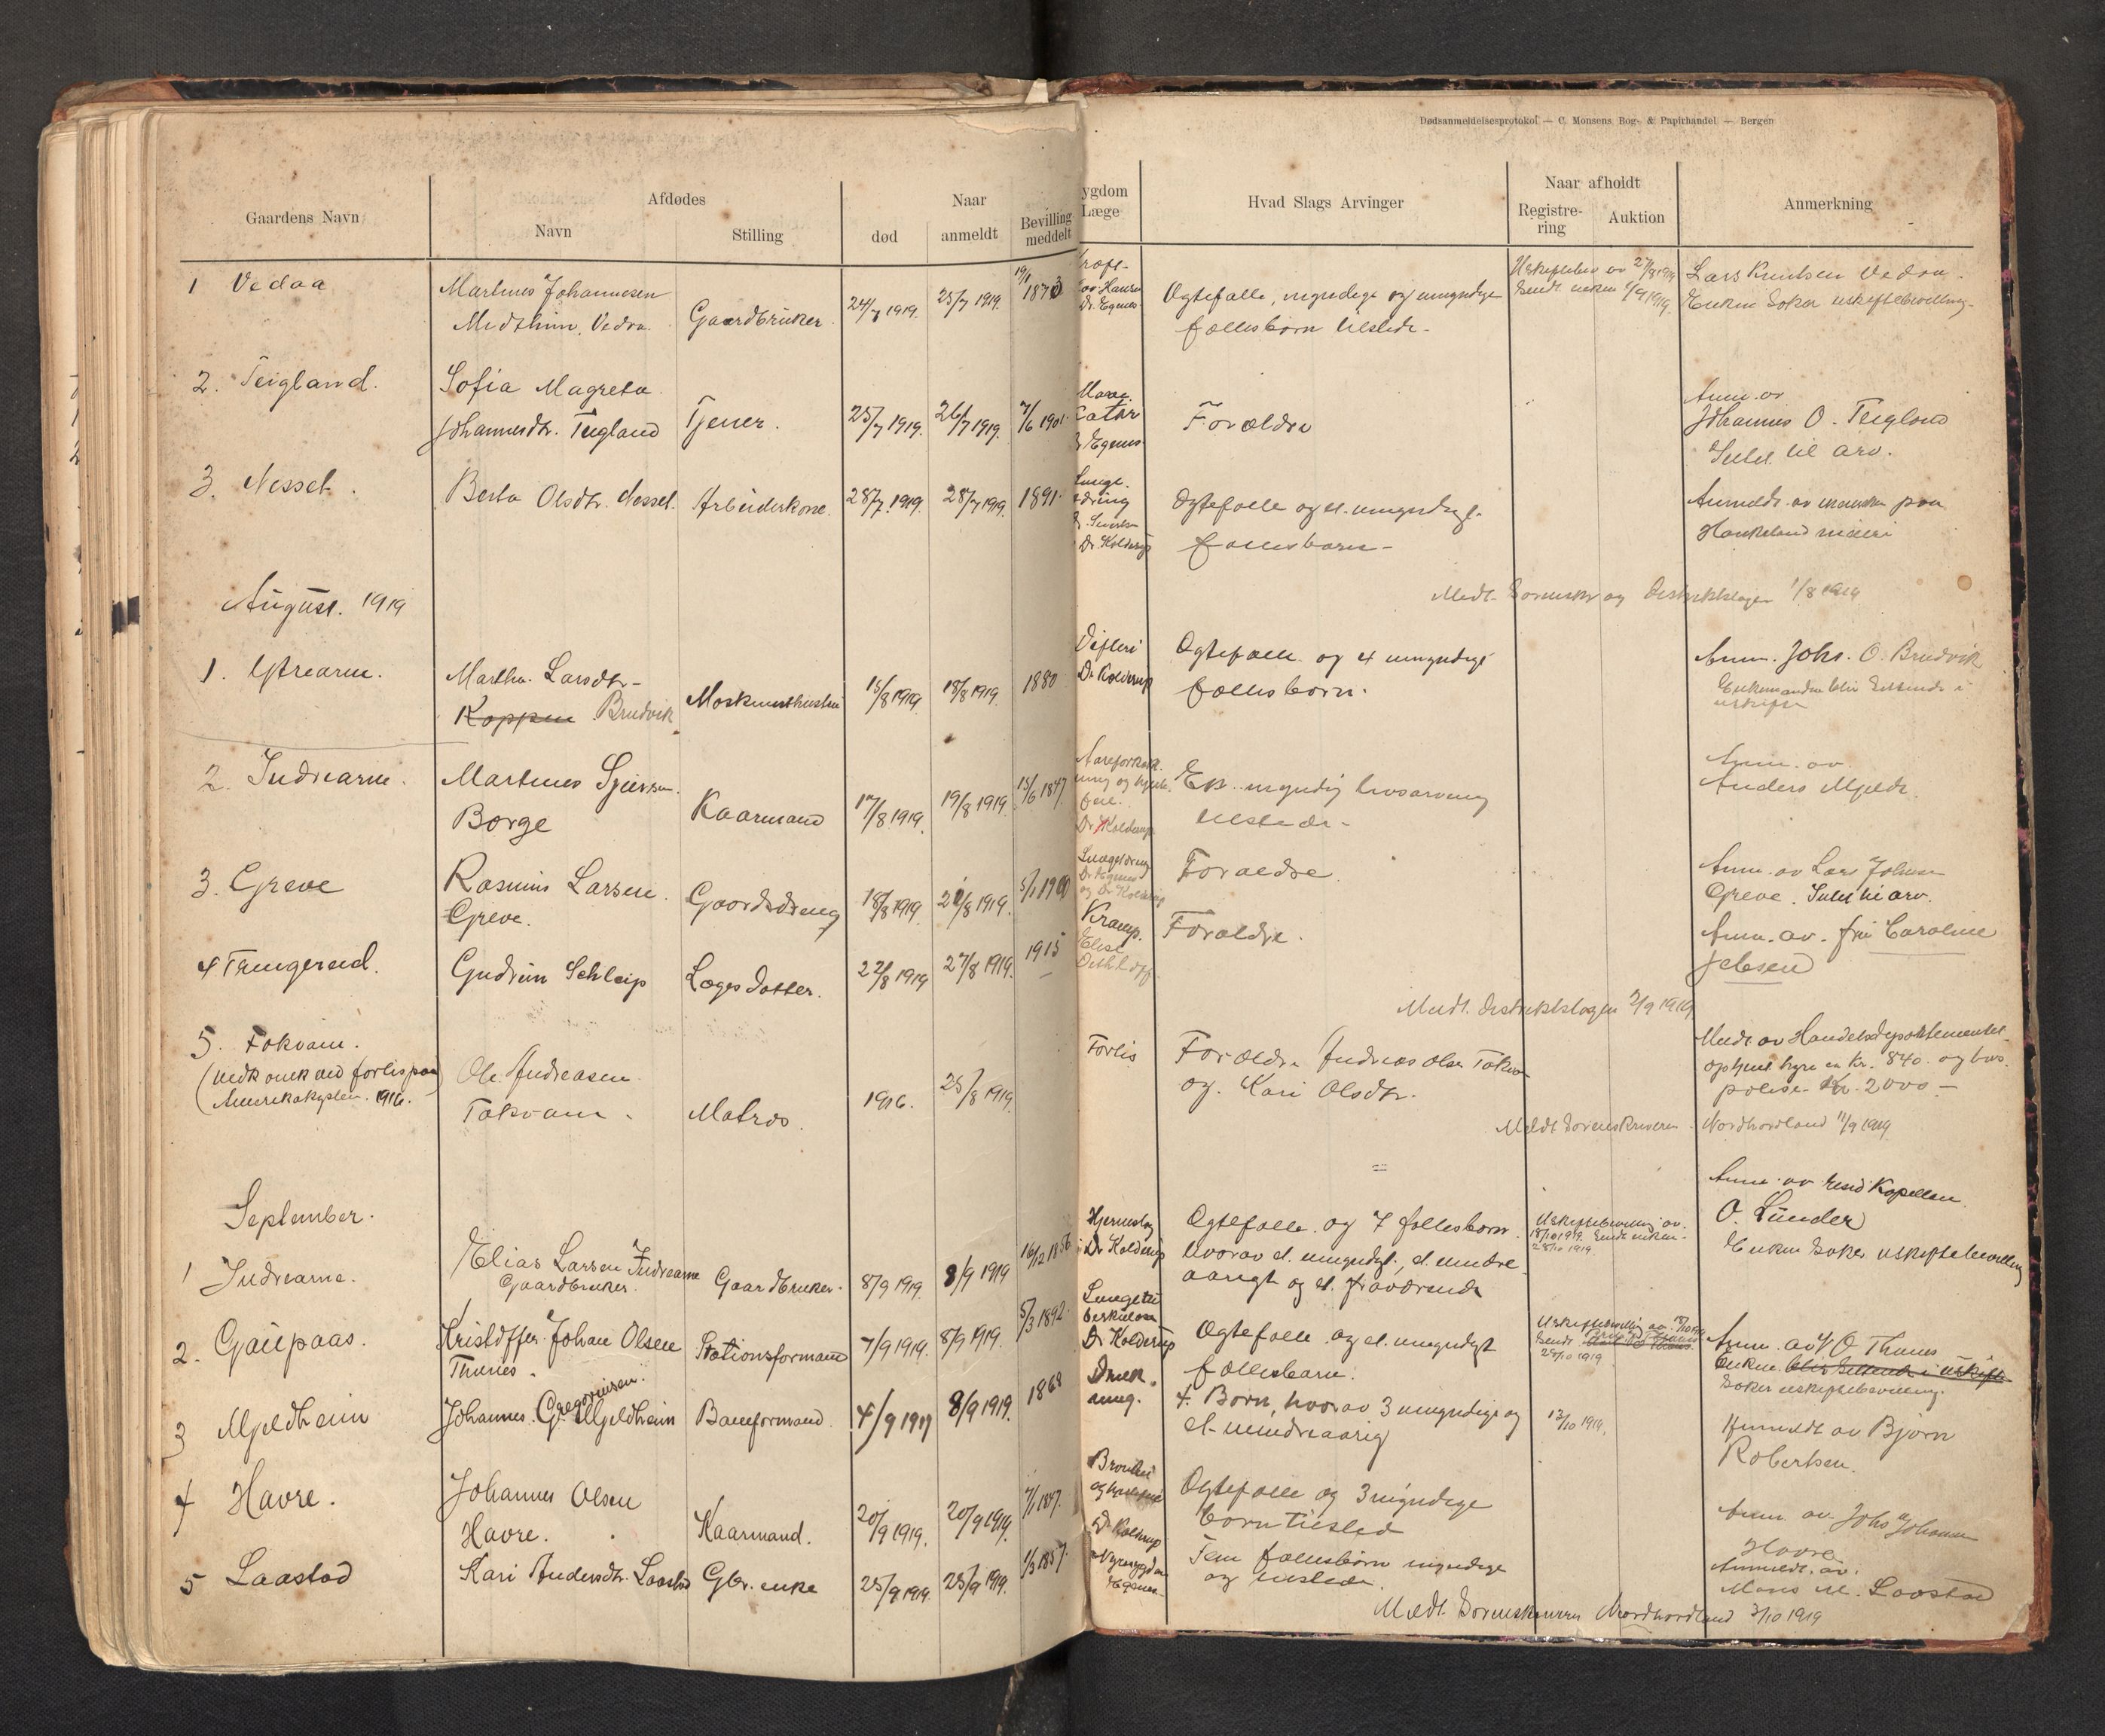 Dødsanmeldelsesprotokol — C. Monsens Bog- & Papirhandel — Bergen
Gaardens Navn
Afdødes
Navn
Stilling
Naar
død
anmeldt
Bevilling meddelt
ygdom
Læge
Hvad Slags Arvinger
Naar afholdt
Registre-
ring
Auktion
Anmerkning
1 Vedaa
Martines Johannesen
Vedaa.
Gaardbruker
24/7 1919.
25/7 1919.
Dr. Egenes
Egtefælle, myndige og umyndige
fællesbørn tilstede.
Lars Knutsen Vedaa.
Enken søker uskiftebevilling.
2. Teigland.
Sofia Magreta
Johannesdtr. Teigland
Tjener.
25/7 1919.
26/7 1919.
7/6 1901.
Forældre
Anm. av
Johannes O. Teigland
Intet til arv.
3. Nesset.
Berta Olsdtr. Nesset.
Arbeiderkone.
28/7. 1919.
28/7 1919.
1891.
Dr. Kolderup
Egtefælle og et umyndigt
fællesbarn
Anmeldt av manden paa
Haukeland mølleri
August. 1919
Meldt Sorenskr og Distriktslægen 1/8 1919
1. Ytrearne.
Martha Larsdtr.
Koppen Brudvik
15/8 1919.
18/8 1919.
1880
Difteri
Dr Kolderup
Egtefælle og 4 umyndige
fællesbørn.
Anm. Johs. O. Brudvik
Enkemanden blir sittende i
uskifte
2. Indrearne.
Martines Sjursen
Borge
Kaarmand
17/8 1919.
19/8 1919.
15/6 1847.
Dr Kolderup
En myndig livsarving
tilstede.
Anm. av
Anders Mjelde.
3. Greve
Rasmus Larsen
Greve.
Gaardsdreng
18/8 1919.
21/8 1919.
5/1 1900
Dr Egenes
og Dr Kolderup
Forældre.
Anm. av Lars Johnsen
Greve. Intet til arv.
4 Trengereid.
Gudrun Schleip
Læges datter.
22/8 1919
27/8 1919.
1915
Kramp.
Forældre.
Anm. av. frk Caroline
Jebsen
Meldt. Distriktslægen 2/9 1919
5. Tokvam.
(Vedk omk ved forlis paa
Amerikakysten. 1916.
Ole Andreasen
Tokvam.
Matros.
1916.
25/8 1919.
Forlis
Forældre Andreas Olsen Tokvam
og. Kari Olsdtr.
Meldt av Handelsdepartementet
optjent hyre en kr. 840. og livs
polise kr. 2000 —
Meldt Sorenskriveren Nordhordland 11/9 1919
September.
Anm. av resid Kapellan
O. Sunder
1 Indrearne.
Elias Larsen Indrearne
Gaardbruker.
Gaardbruker.
8/9 1919.
8/9 1919
16/12 1856
Hjerneslag
Dr Kolderup
Egtefælle og 7 fællesbørn
hvorav et umyndigt, et mindre-
aarigt og et fraværende
Uskiftebevilling av
18/10 1919. Sendt enken
28/10 1919.
Enken søker uskiftebevilling
2. Gaupaas.
Kristoffer Johan Olsen
Thunes.
Stationsformand
7/9 1919.
8/9 1919.
5/3 1892.
Lungetu
berkulose
Dr Kolderup
Egtefælle og et umyndigt
fællesbarn.
28/10 1919
Enken blir sittende i uskifte
søker uskiftebevilling.
3 Mjeldheim
Johannes Gregoriusen. G. Mjeldheim
Baneformand
4/9 1919
8/9 1919.
1868
Drukning.
4. Børn, hvorav 3 umyndige og
et mindreaarig
12/10 1919.
Anmeldt av Bjørn
Robertsen.
4 Havre.
Johannes Olsen
Havre.
Kaarmand.
20/9 1919.
20/9 1919.
7/1 1847.
Dr Kolderup
Egtefælle og 3 myndige
børn tilsted
Anm. av Johs Johannesen
Havre
5 Laastad
Kari Andersdtr. Laastad
Gbr. enke
25/9 1919.
25/9 1919.
1/3 1857.
Egenes
Fem fællesbørn myndige
og tilstede.
Anmeldt. av.
Mons M. Laastad
Meldt Sorenskriveren Nordhordland 3/10 1919